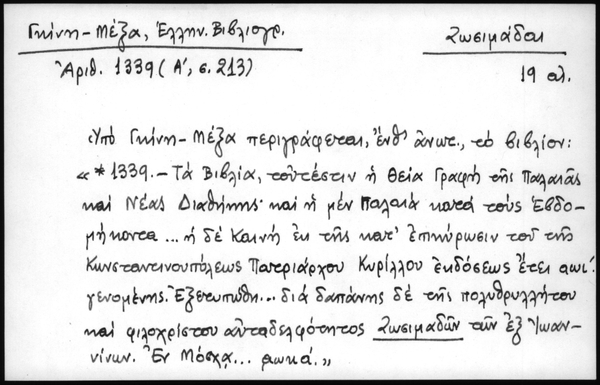 Γκίνη-Μέξα, Ἑλλην. Βιβλιογρ. Ζωσιμάδαι
Ἀριθ. 1339 (Α', σ. 213) 19 αἰ.
Ὑπὸ Γκίνη-Μέξα περιγράφεται, ἔνθ' ἀνωτ., τὸ βιβλίον:
«*1339.- Τὰ Βιβλία, τουτέστιν ἡ Θεία Γραφὴ τῆς Παλαιᾶς
καὶ Νέας Διαθήκης· καὶ ἡ μὲν Παλαιὰ κατὰ τοὺς Ἑβδο-
μήκοντα... ἡ δὲ Καινὴ ἐκ τῆς κατ' ἐπικύρωσιν τοῦ τῆς
Κωνσταντινουπόλεως Πατριάρχου Κυρίλλου ἐκδόσεως ἔτει αωι'.
γενομένης. Ἐξετυπώθη... διὰ δαπάνης δὲ τῆς πολυθρυλλήτου
καὶ φιλοχρίστου αὐταδελφότητος Ζωσιμαδῶν τῶν ἐξ Ἰωαν-
νίνων. Ἐν Μόσχᾳ... αωκά.»